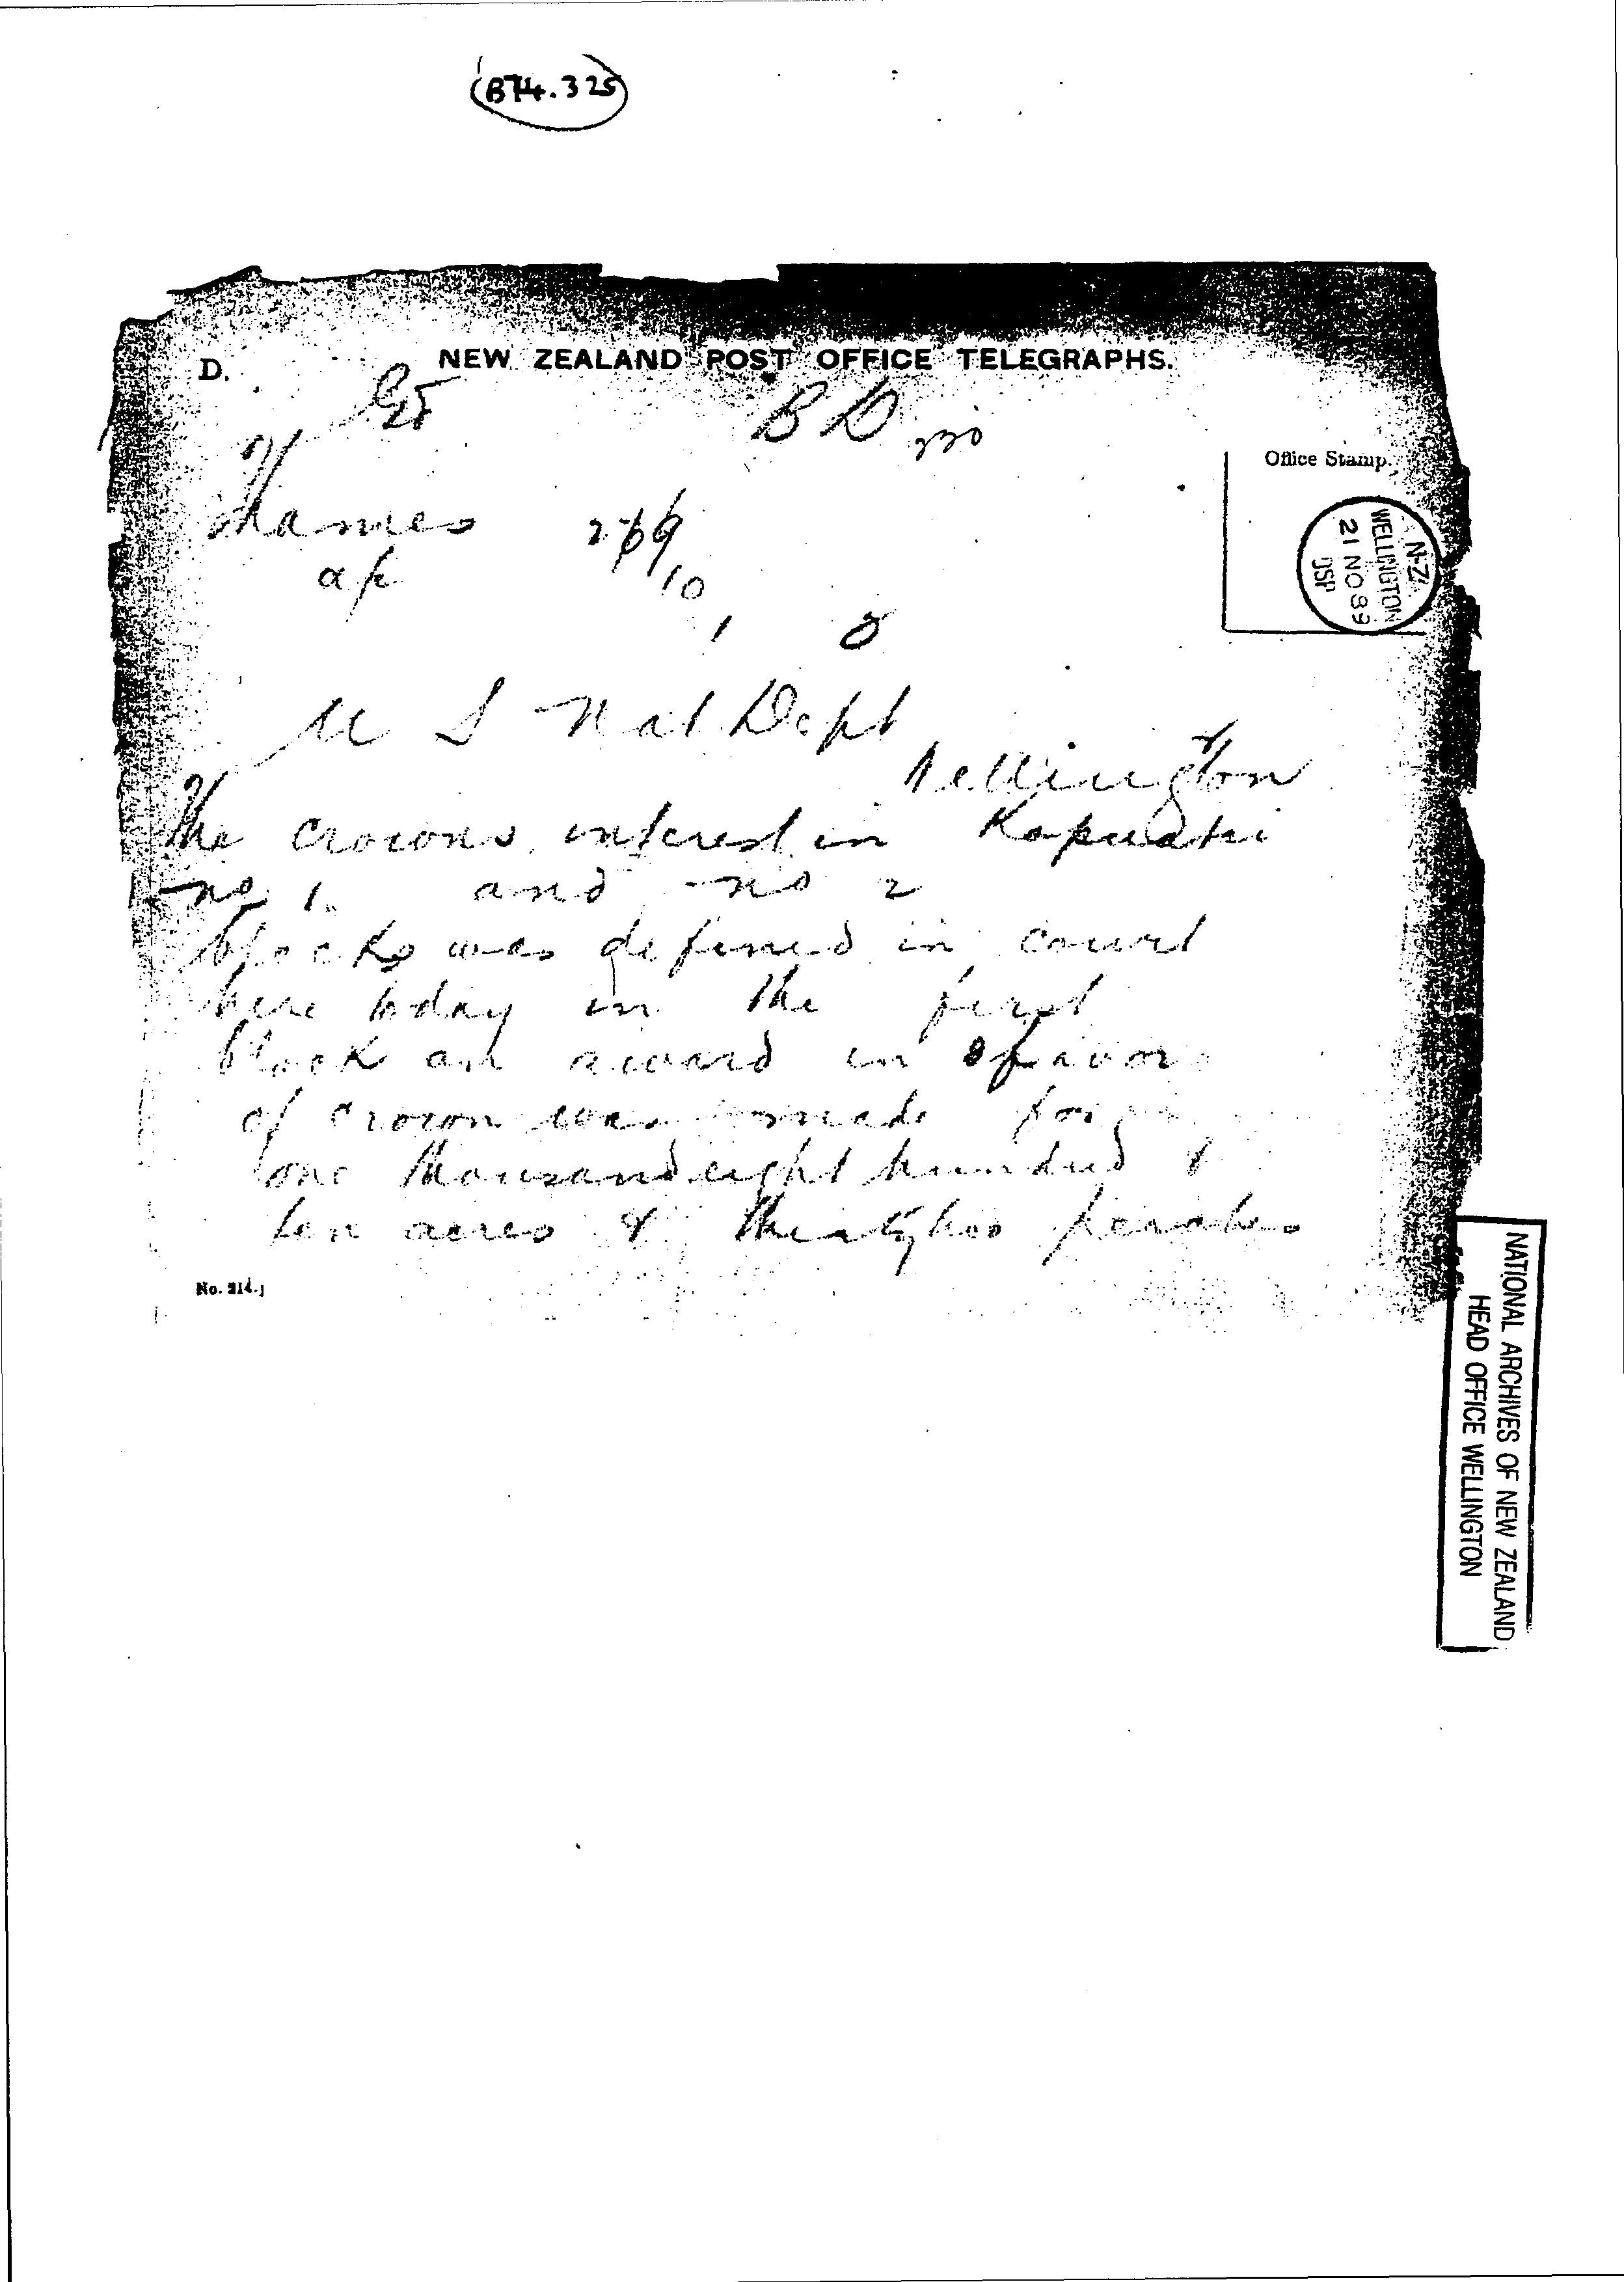 B74.325
NEW ZEALAND POST OFFICE TELEGRAPHS.
D.
BD
Office Stamp.
Thames
N.Z.
WELLINGTON
21 NO 89
10
1
U S Nat Dept
Wellington
The crowns interest in Kapuatai
no 1. and no 2
blocks was defined in court
here today in the first
block an award in favor
of crown was made for
one thousand eight hundred &
ten acres & perches
No. 214.]
NATIONAL ARCHIVES OF NEW ZEALAND
HEAD OFFICE WELLINGTON